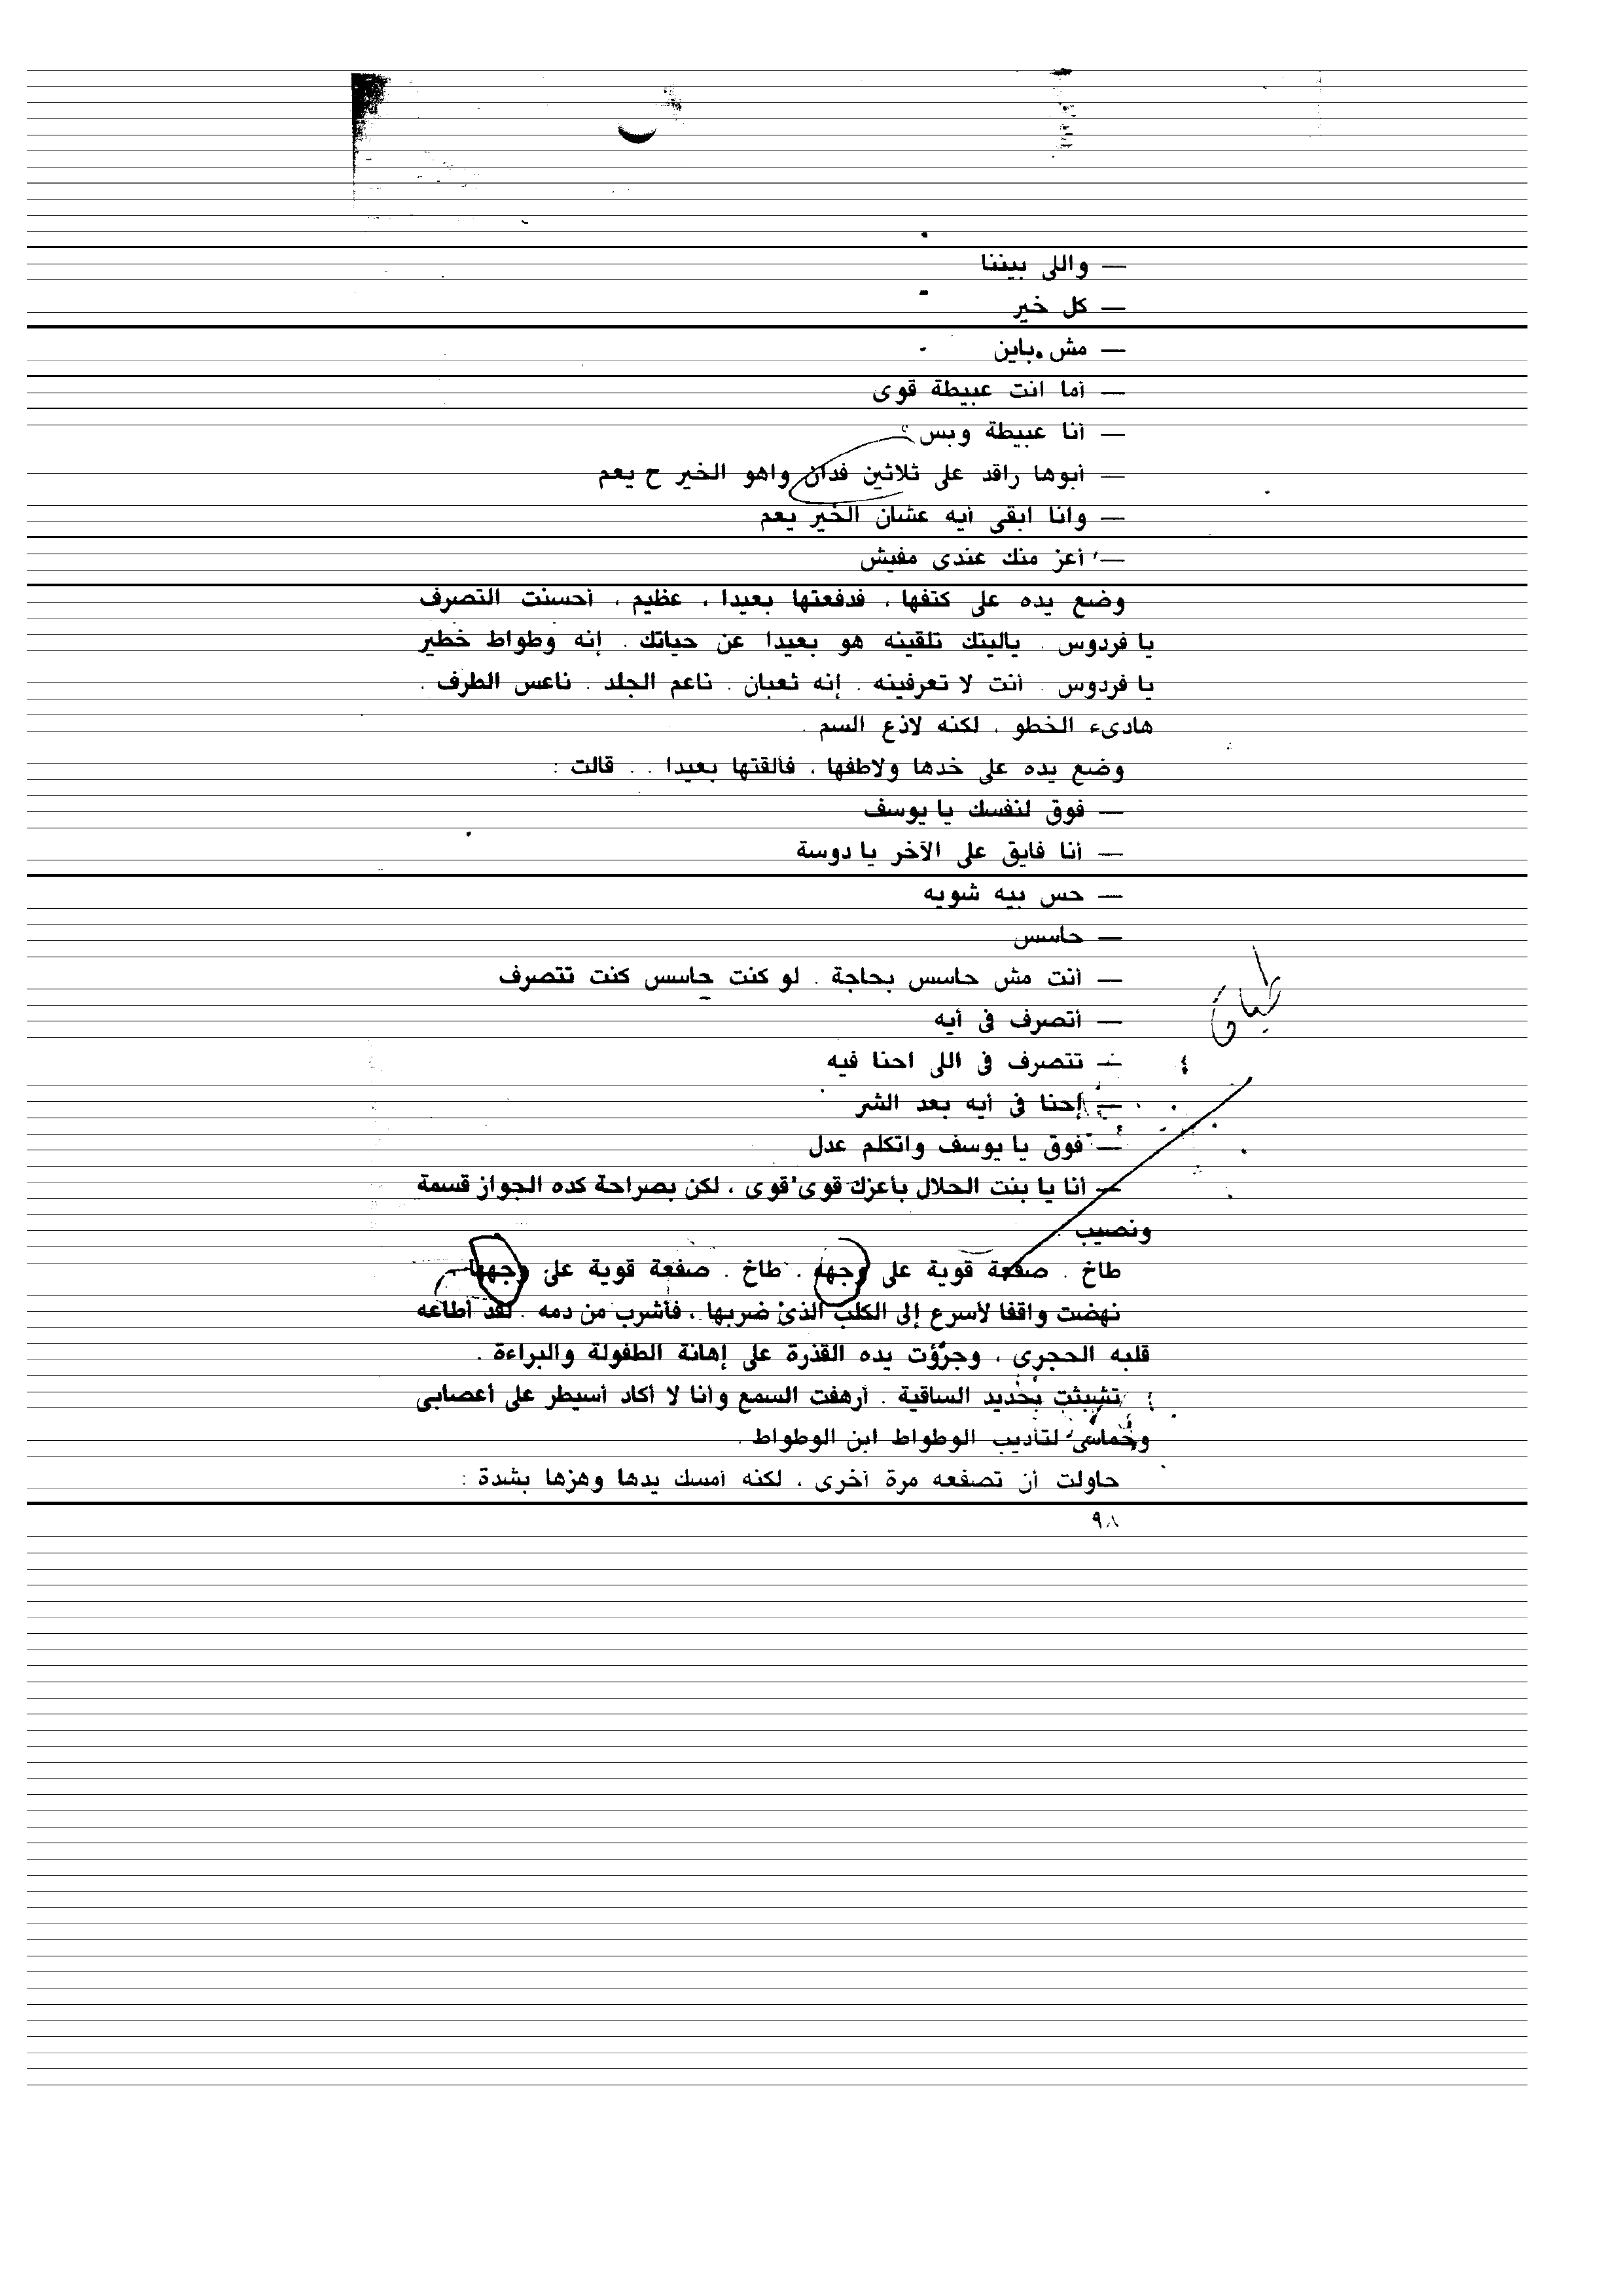 — واللى بيننا
— كل خير
— مش باين
— أما انت عبيطة قوى
— أنا عبيطة وبس ؟
— أبوها راقد على ثلاثين فدان واهو الخير ح يعم
— وانا ابقى أيه عشان الخير يعم
— أعز منك عندى مفيش
وضع يده على كتفها ، فدفعتها بعيدا ، عظيم ، أحسنت التصرف
يا فردوس . ياليتك تلقينه هو بعيدا عن حياتك . إنه وطواط خطير
يا فردوس . أنت لا تعرفينه . إنه ثعبان . ناعم الجلد . ناعس الطرف .
هادىء الخطو ، لكنه لاذع السم .
وضع يده على خدها ولاطفها ، فألقتها بعيدا . . قالت :
— فوق لنفسك يا يوسف
— أنا فايق على الآخر يا دوسة
— حس بيه شويه
— حاسس
— أنت مش حاسس بحاجة . لو كنت حاسس كنت تتصرف
— أتصرف فى أيه
— تتصرف فى اللى احنا فيه
— إحنا فى أيه بعد الشر
— فوق يا يوسف واتكلم عدل
— أنا يا بنت الحلال بأعزك قوى قوى ، لكن بصراحة كده الجواز قسمة
ونصيب .
طاخ . صفعة قوية على وجهه . طاخ . صفعة قوية على وجهها
نهضت واقفا لأسرع إلى الكلب الذى ضربها ، فأشرب من دمه . لقد أطاعه
قلبه الحجرى ، وجرؤت يده القذرة على إهانة الطفولة والبراءة .
تشبثت بحديد الساقية . أرهفت السمع وأنا لا أكاد أسيطر على أعصابى
وحماسى لتأديب الوطواط ابن الوطواط .
حاولت أن تصفعه مرة أخرى ، لكنه أمسك يدها وهزها بشدة :
٩٨